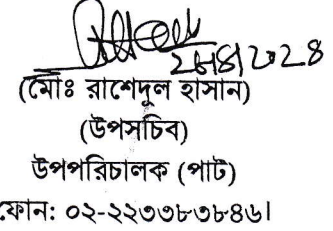 (মোঃ রাশেদুল হাসান)
(উপসচিব)
উপপরিচালক (পাট)
ফোন: ০২-২২৩৩৮৩৮৪৬।